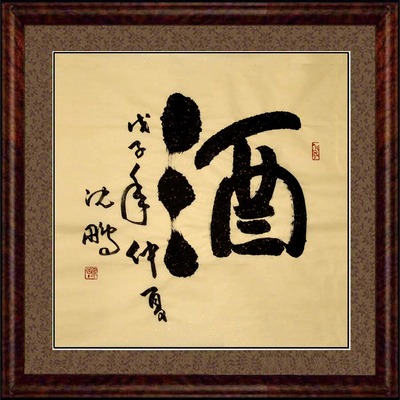 酒
戊子年仲夏
沈鹏